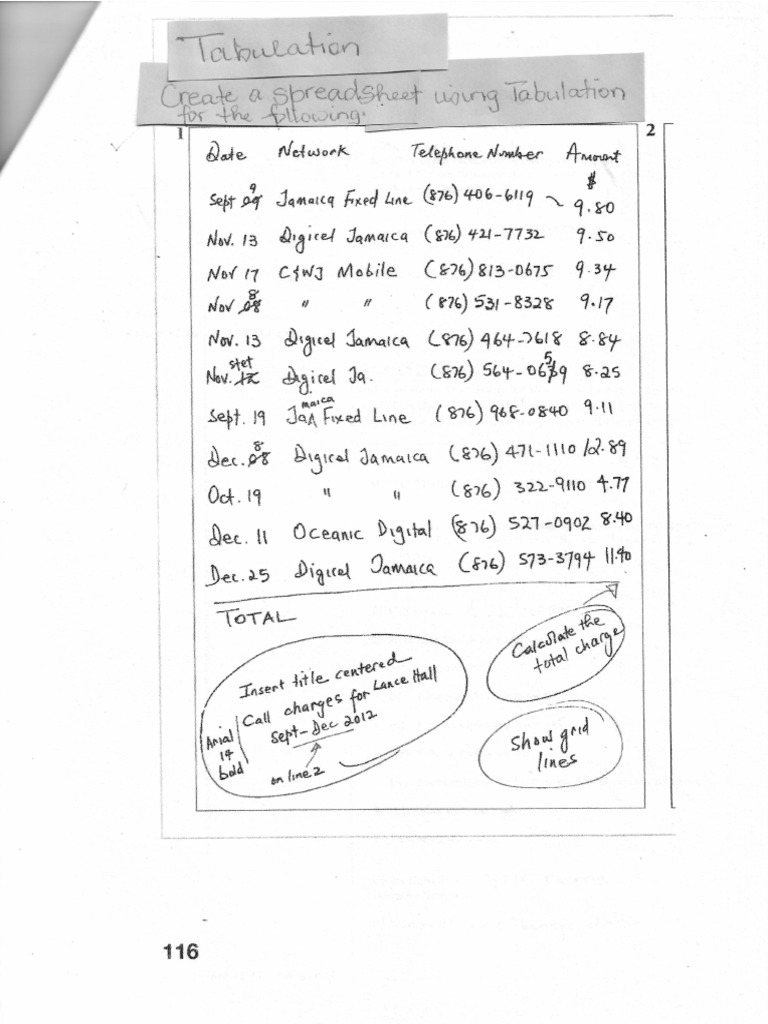 Tabulation
Create a spreadsheet using Tabulation
for the following.
1 2
Date Network Telephone Number Amount
$
Sept 09 9 Jamaica Fixed Line (876) 406-6119 ~ 9.80
Nov. 13 Digicel Jamaica (876) 421-7732 9.50
Nov 17 C&WJ Mobile (876) 813-0675 9.34
Nov 08 8 " " (876) 531-8328 9.17
Nov. 13 Digicel Jamaica (876) 464-7618 8.84
stet
Nov. 12 Digicel Ja. (876) 564-0659 8.25
maica
Sept. 19 Ja^ Fixed Line (876) 968-0840 9.11
Dec. 08 8 Digicel Jamaica (876) 471-1110 12.89
Oct. 19 " " (876) 322-9110 4.77
Dec. 11 Oceanic Digital (876) 527-0902 8.40
Dec. 25 Digicel Jamaica (876) 573-3794 11.40
TOTAL
Calculate the
total charge
Insert title centered
Call charges for Lance Hall
Sept-Dec 2012
on line 2
Arial
14
bold
Show grid
lines
116